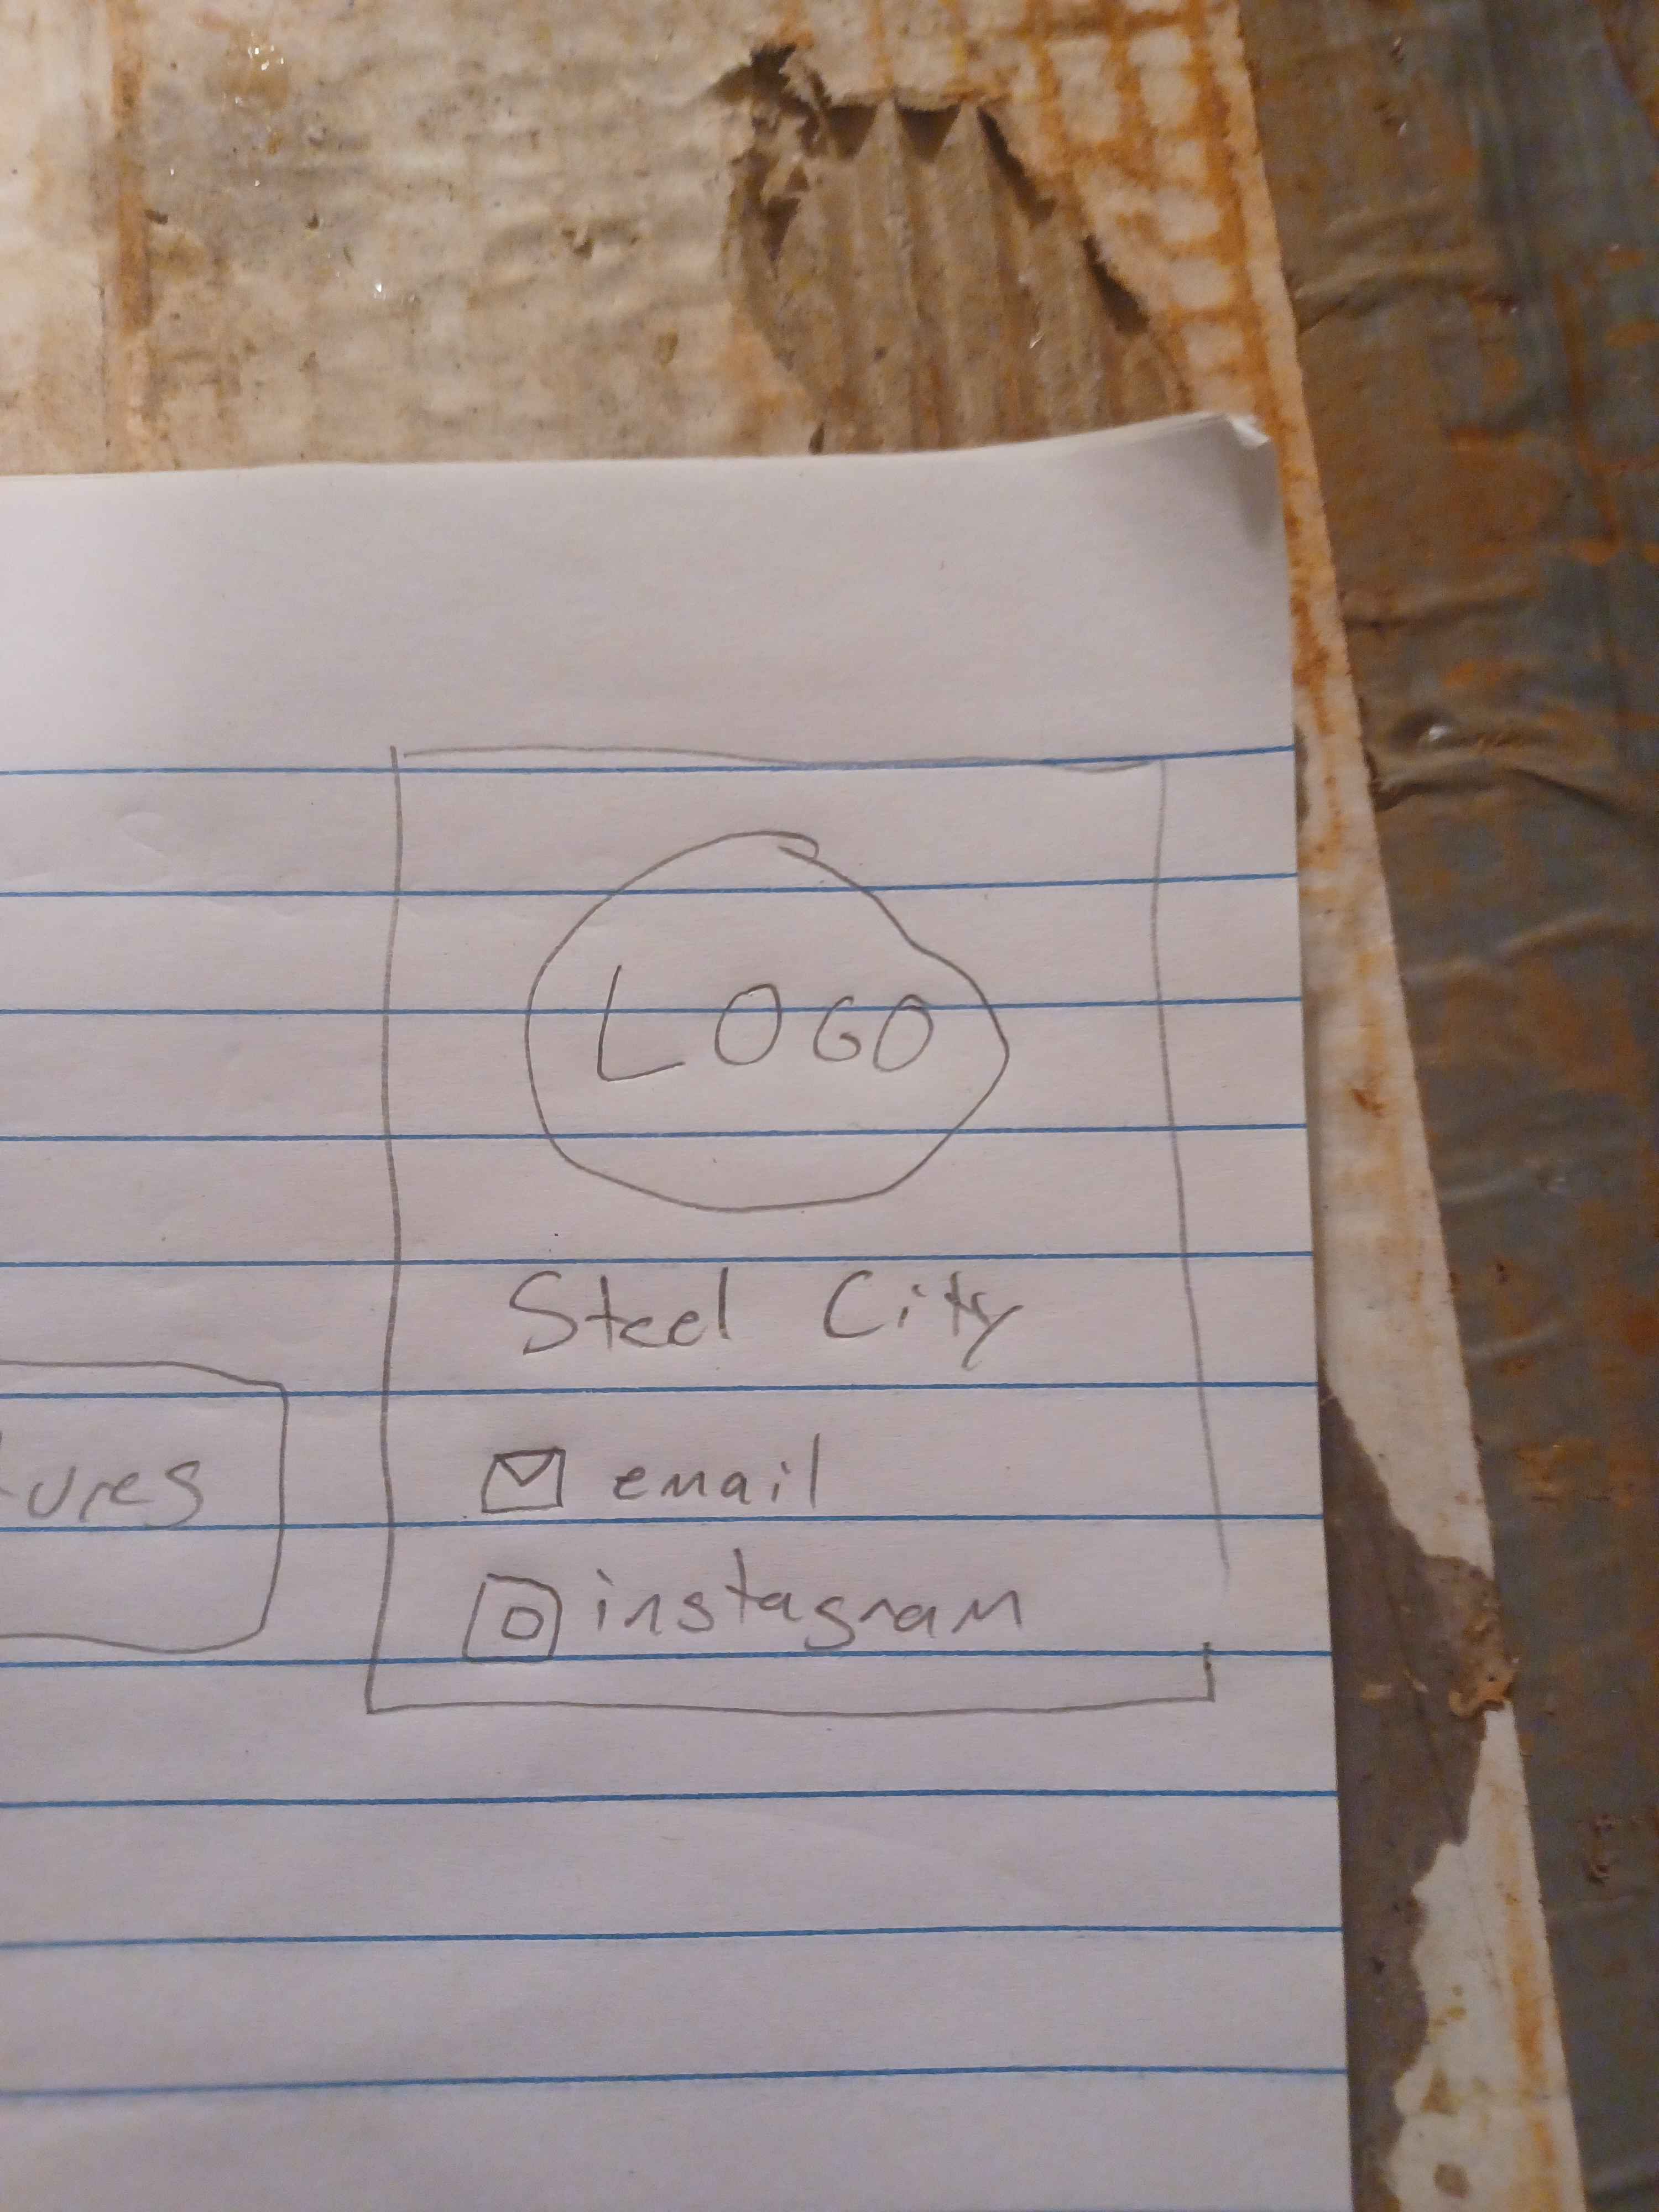 LOGO
Steel City
email
instagram